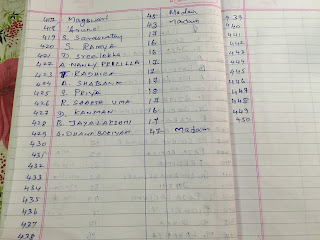 417 Magawari 45 Madam 439
418 43 Madam 440
419 S Saravanan 17 441
420 S. Ramya 16 442
421 D. Sreelekha 17 443
422 A NANCY PRICILLA 17 444
423 RADHIKA 12 445
424 A SHAJBANK 17 446
425 S. PRIYA 18 447
426 R SABETH UMA 17 448
427 D. KANMAN 16 449
428 R. JAYALAPSOMI 17 450
429 A. DHANABAKIYAM 47 Madam
430
431
432
433
434
435
436
437
438